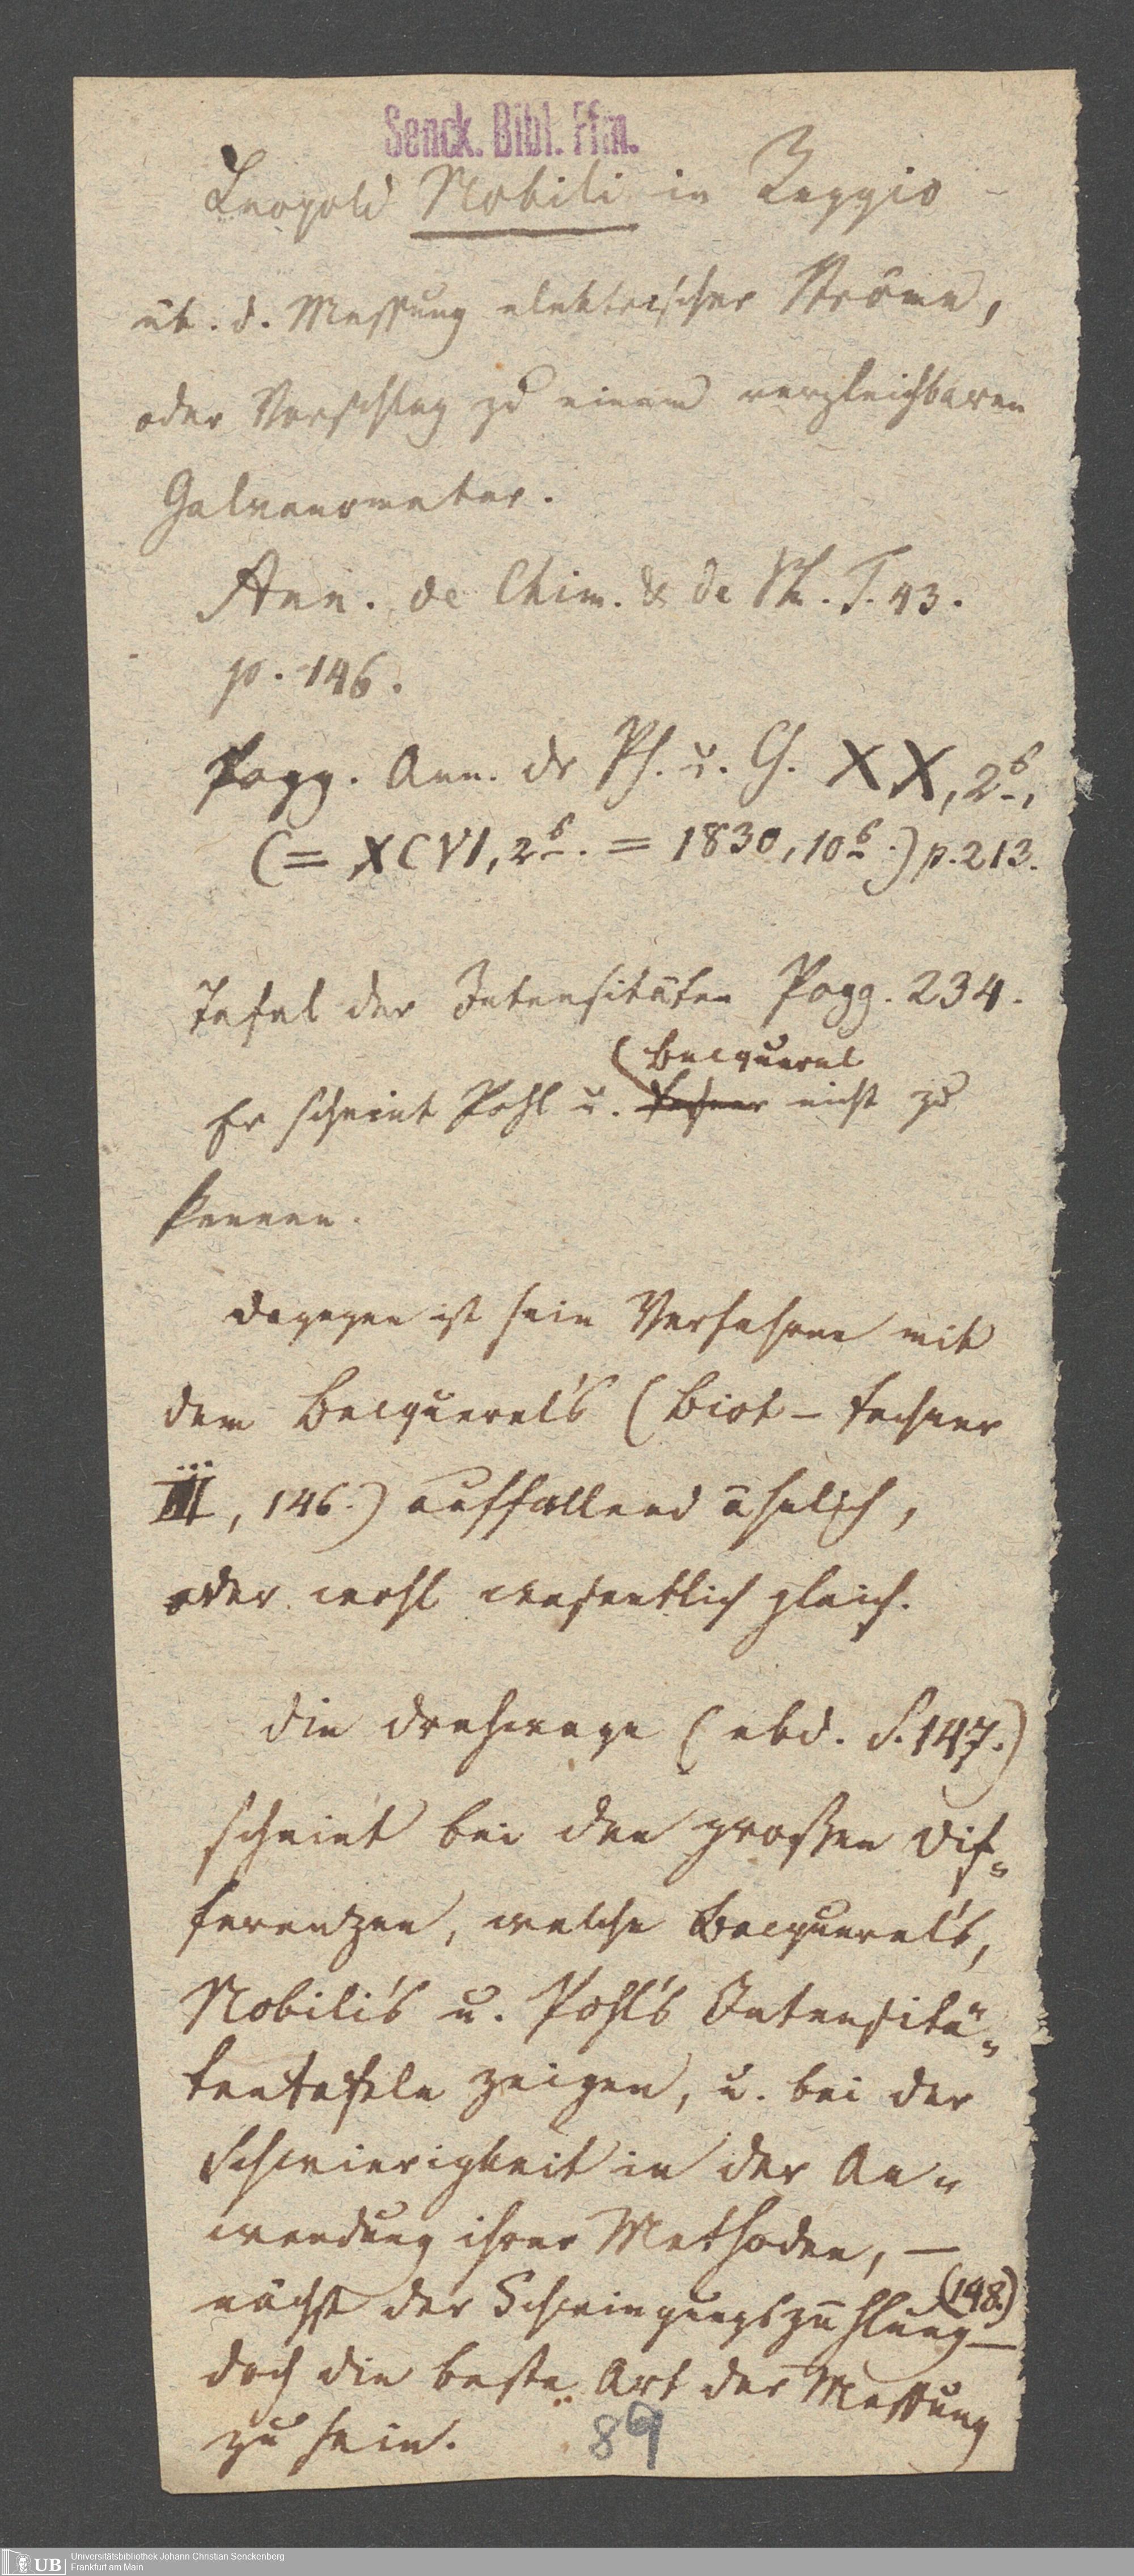 Senck. Bibl. Ffm.
Leopold Nobili in Reggio –
üb. d. Messung elektrischer Ströme,
oder Vorschlag zu einem vergleichbaren
Galvanometer.
Ann. de Chim. & de Ph. T. 43.
p. 146.
Pogg. Ann. dr Ph. u. Ch. XX, 2 b,
(= XCVI, 2 b. = 1830, 10 b.) p. 213.
Tafel der Intensitäten Pogg. 234.
(Becquerel
Er scheint Pohl u. Fechner nicht zu
kennen.
Dagegen ist sein Verfahren mit
dem Becquerel's (Biot – Fechner
III, 146.) auffallend ähnlich,
oder wohl wesentlich gleich.
Die Drehwage (ebd. S. 147.)
scheint bei den großen Dif=
ferenzen, welche Becquerel's,
Nobili's u. Pohl's Intensitä=
tentafeln zeigen, u. bei der
Schwierigkeit in der An=
wendung ihrer Methoden, –
(148.)
nächst der Schwingungszählung –
doch die beste Art der Messung
zu sein.
89
UB Universitätsbibliothek Johann Christian Senckenberg
Frankfurt am Main